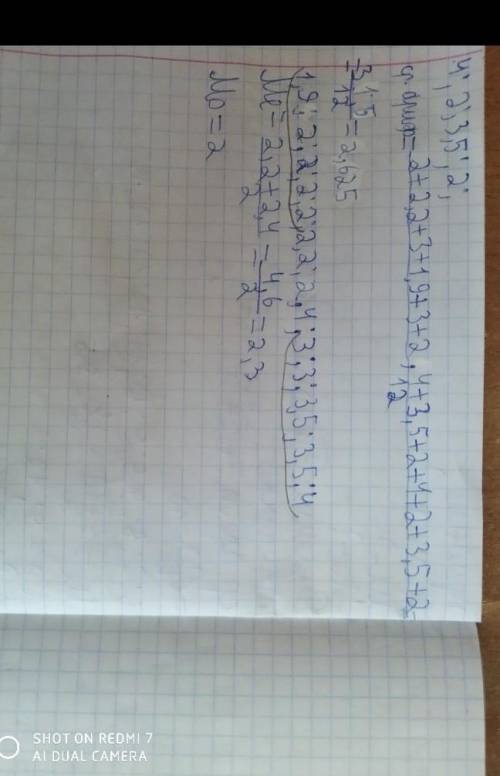 4; 2; 3,5; 2;
= 2+2,2+3+1,9+3+2,4+3,5+2+4+2+3,5+2
12
= 31,5 / 12 = 2,625
1,9; 2; 2; 2; 2; 2,2; 2,4; 3; 3; 3,5; 3,5; 4
Me = 2,2+2,4 / 2 = 4,6 / 2 = 2,3
Mo = 2
SHOT ON REDMI 7
AI DUAL CAMERA